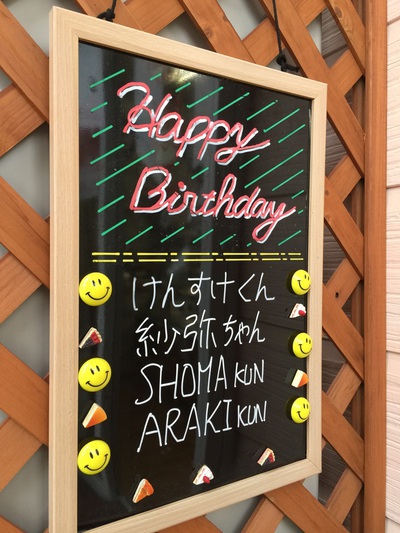 Happy
Birthday
けんすけくん
紗弥ちゃん
SHOMA KUN
ARAKI KUN